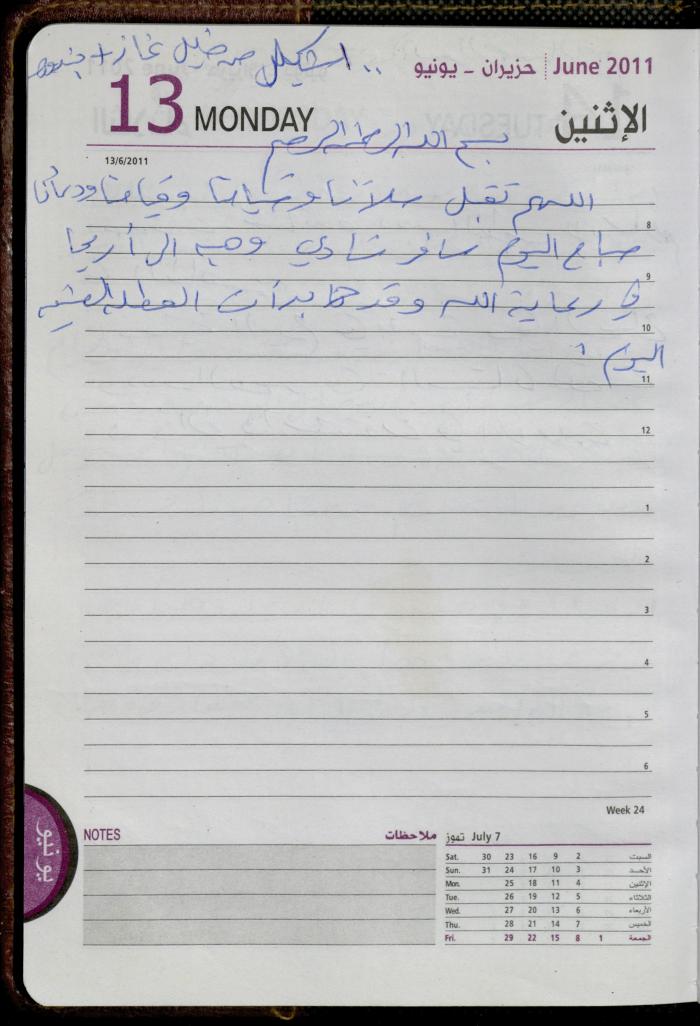 .. استكمل من خليل غاز +
June 2011 حزيران - يونيو
13 MONDAY الإثنين
بسم الله الرحمن الرحيم
13/6/2011
اللهم تقبل صلاتنا وصيامنا وقيامنا ودعائنا
8
صباح اليوم سافر شادي وهبه الى أريحا
9
في رعاية الله وقد بدأت العطلة الصيفية
10
اليوم .
11
12
1
2
3
4
5
6
Week 24
NOTES ملاحظات
July 7 تموز
Sat. 30 23 16 9 2 السبت
Sun. 31 24 17 10 3 الأحد
Mon. 25 18 11 4 الإثنين
Tue. 26 19 12 5 الثلاثاء
Wed. 27 20 13 6 الأربعاء
Thu. 28 21 14 7 الخميس
Fri. 29 22 15 8 1 الجمعة
يونيو